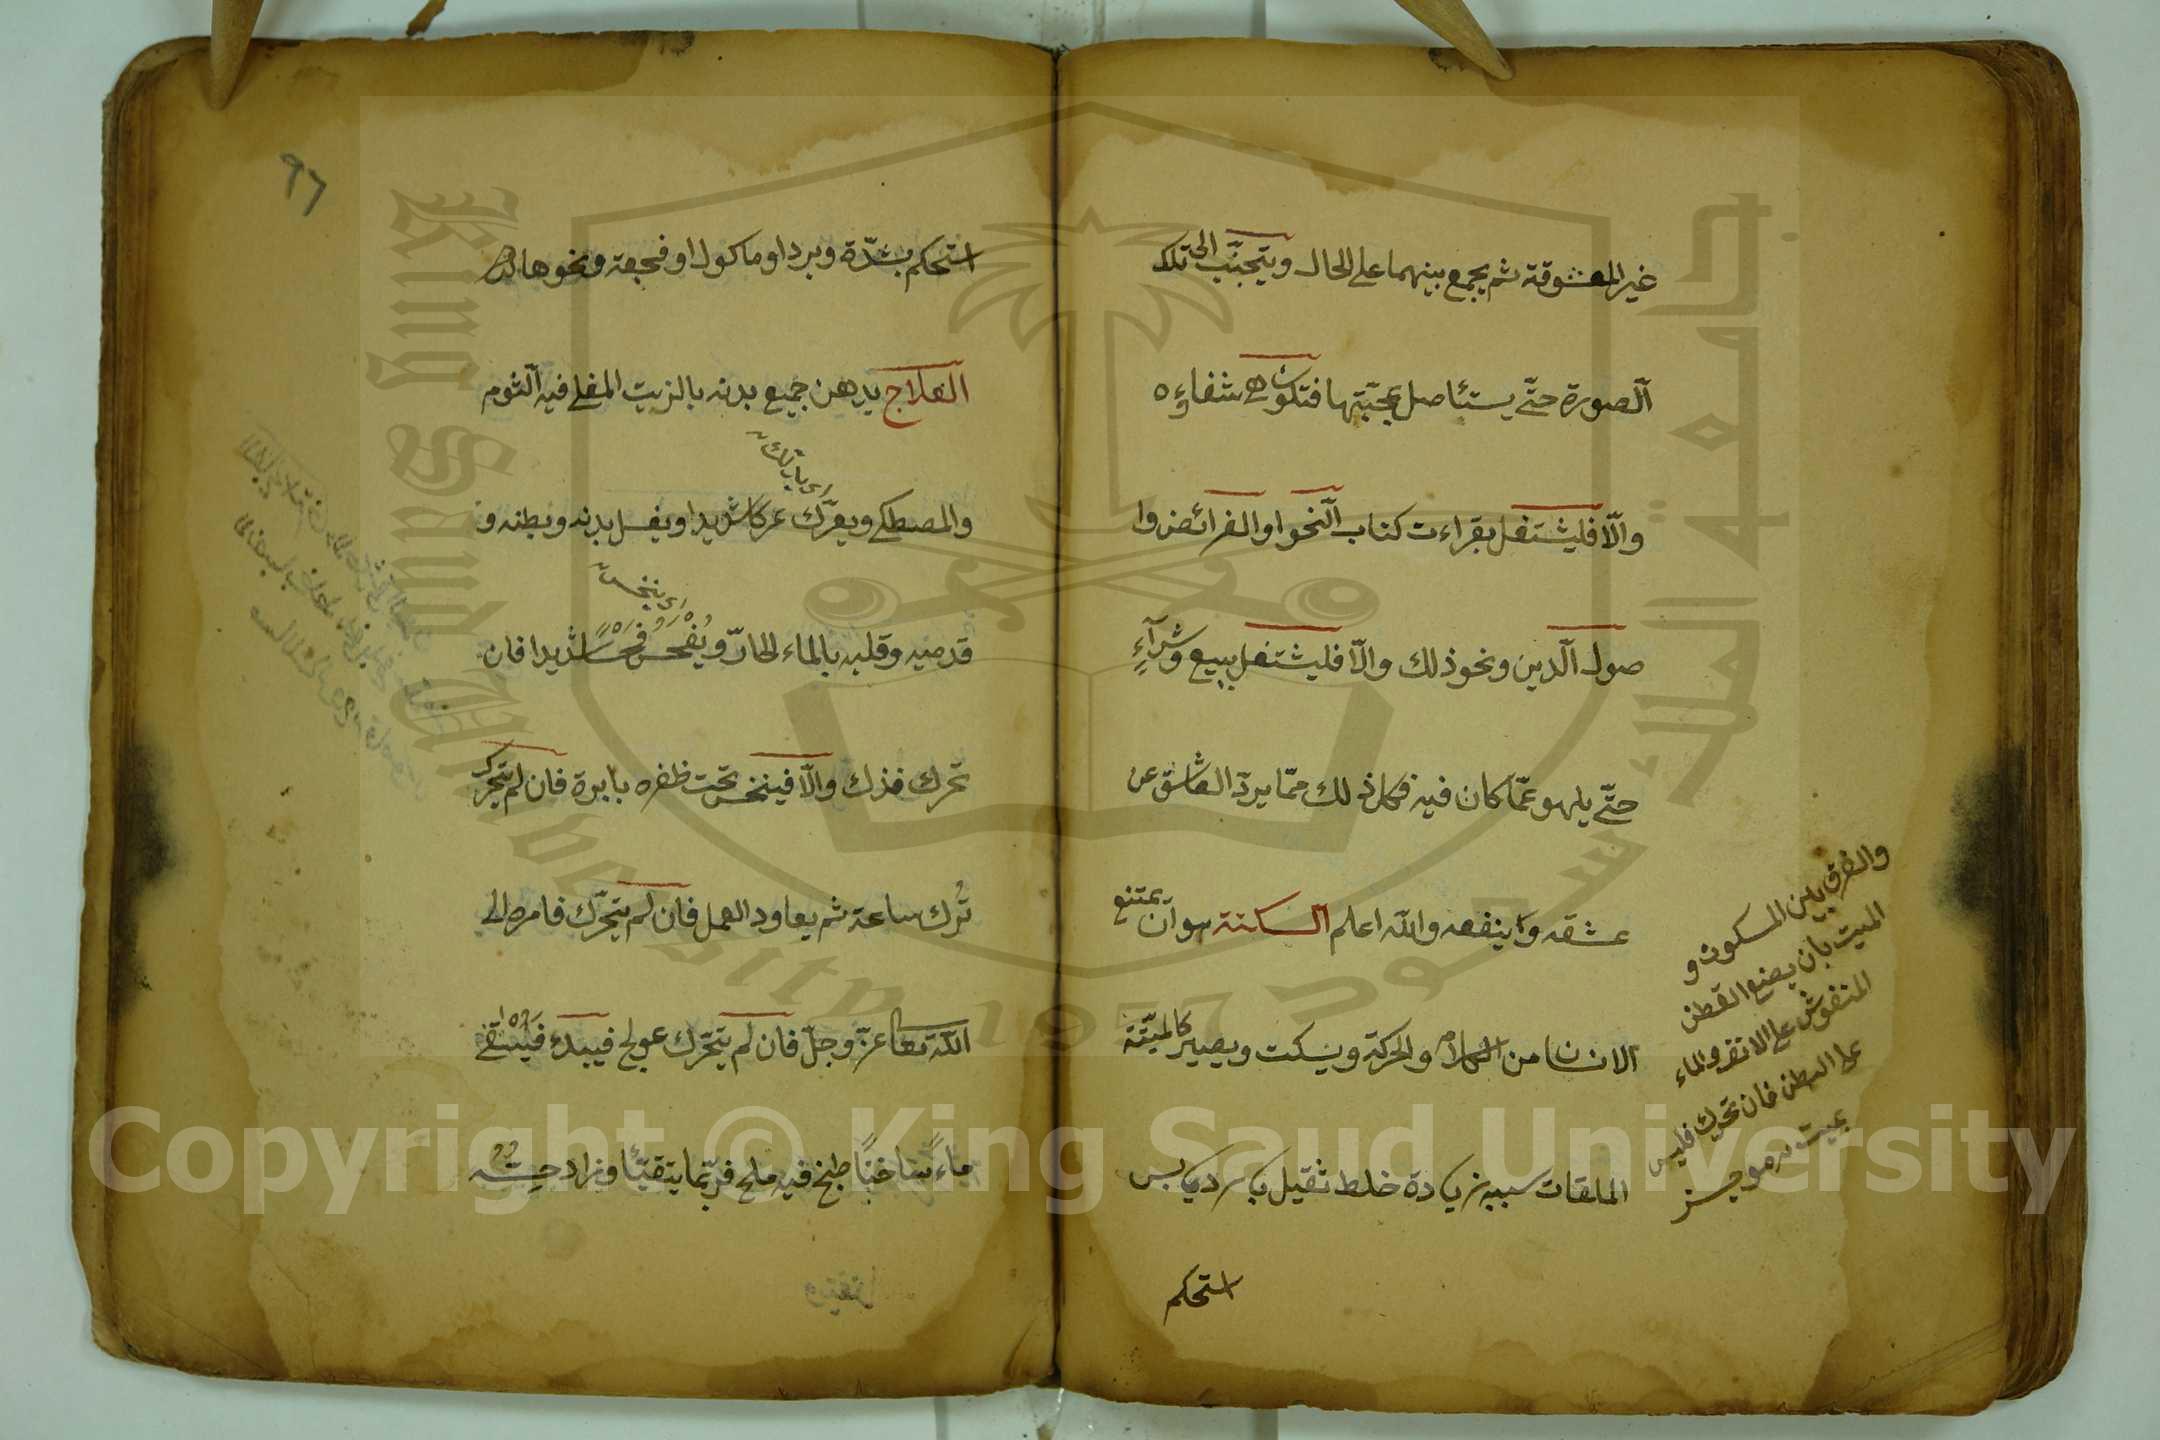 غير المعشوقة ثم يجمع بينهما على الحال ويتجنب الى تلك
الصورة حتّى يستئاصل محبّتها فتكون هى شفاءه
والّا فليشتغل بقراءت كتاب النّحو او الفرائض او ا
صول الدّين ونحو ذلك والّا فليشتغل ببيع وشرآء
حتّى يلهو عمّا كان فيه فكل ذلك ممّا يردّ العاشق عن
عشقه وينفعه والله اعلم السكتة هو ان يمتنع
الانسان من الكلام والحركة ويسكت ويصير كالميّتة
الملقات سببه زيادة خلط ثقيل بارد يابس
استحكم
والفرق بين المسكوت و
الميت بان يضع القطن
المنفوش على الانف والماء
على البطن فان تحرك فليس
بميت موجز
٩٦
استحكم بشدّة وبرد او ماكول او فجعة ونحوها
العلاج يدهن جميع بدنه بالزيت المغلى فيه الثّوم
والمصطكى ويعرّك عركا شديدا ويغسل بدنه وبطنه و
اى يدلّك
قدميه وقلبه بالماء الحارّ ويفحس فحسًا شديدا فان
اى ينخس
تحرك فذلك والّا فينخس تحت ظفره بابرة فان لم يتحرك
تُرك ساعة ثم يعاود العمل فان لم يتحرّك فامره الى
اللّه تعا عزّ وجلّ فان لم يتحرّك عولج فيبدء فيستقى
ماءً ساخنًا طبخ فيه ملح فربّما يتقيّئا وزاد حسّه
Copyright © King Saud University
جامعة الملك سعود
King Saud University 1957